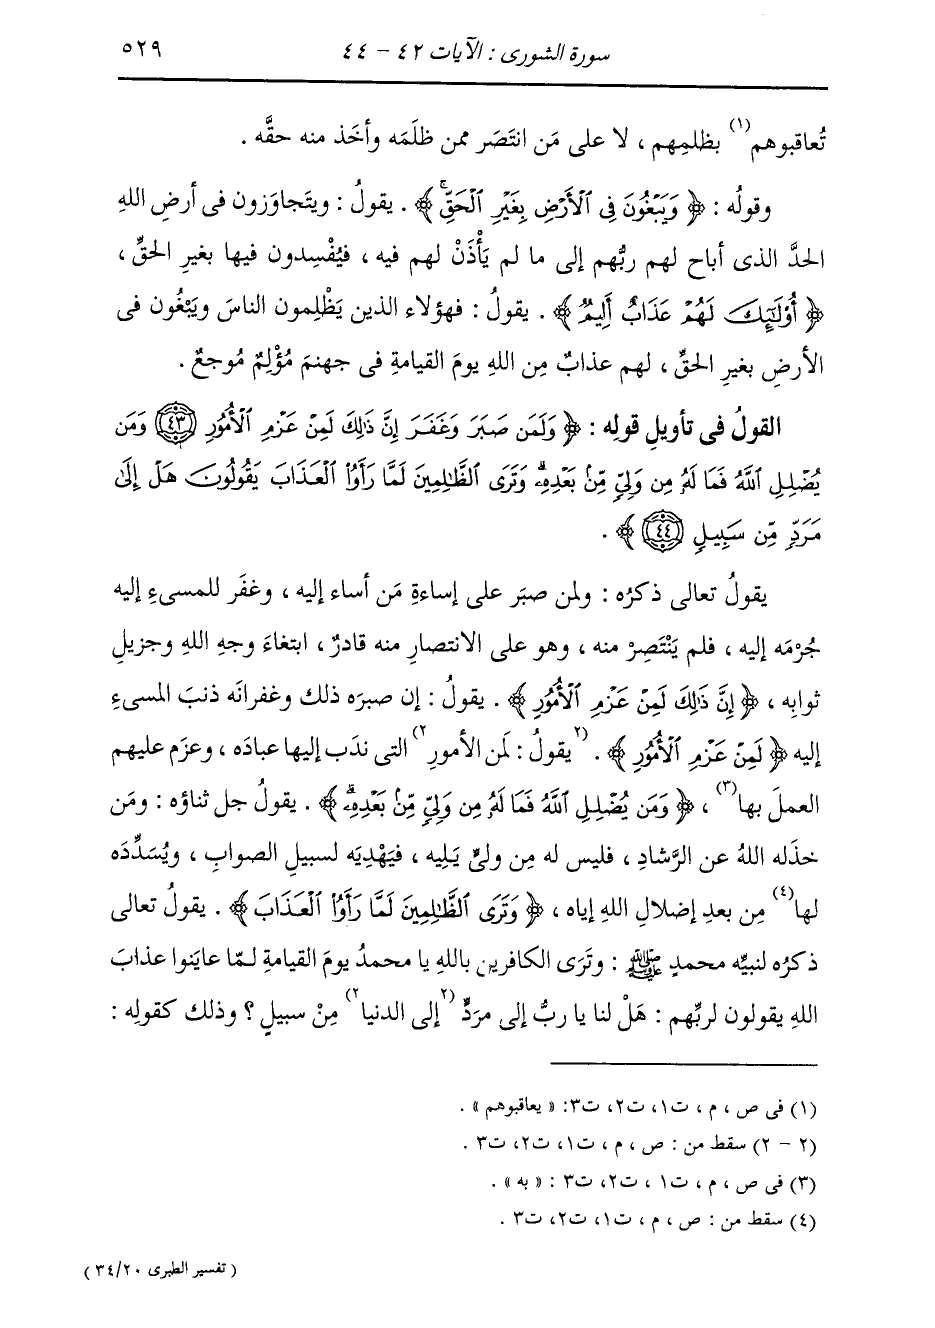 سورة الشورى : الآيات ٤٢ - ٤٤
٥٢٩
تُعاقبوهم(١) بظلمِهم ، لا على مَن انتَصَر ممن ظلَمَه وأخَذ منه حقَّه .
وقولُه : ﴿ وَيَبْغُونَ فِى ٱلْأَرْضِ بِغَيْرِ ٱلْحَقِّۚ ﴾ . يقولُ : ويتَجاوَزون فى أرضِ اللهِ
الحدَّ الذى أباح لهم ربُّهم إلى ما لم يَأْذَنْ لهم فيه ، فيُفْسِدون فيها بغيرِ الحقِّ ،
﴿ أُوْلَٰٓئِكَ لَهُمْ عَذَابٌ أَلِيمٌ ﴾ . يقولُ : فهؤلاء الذين يَظْلِمون الناسَ ويَبْغُون فى
الأرضِ بغيرِ الحقِّ ، لهم عذابٌ مِن اللهِ يومَ القيامةِ فى جهنمَ مُؤْلِمٌ مُوجعٌ .
القولُ فى تأويلِ قوله : ﴿ وَلَمَن صَبَرَ وَغَفَرَ إِنَّ ذَٰلِكَ لَمِنْ عَزْمِ ٱلْأُمُورِ ٤٣ وَمَن
يُضْلِلِ ٱللَّهُ فَمَا لَهُۥ مِن وَلِىٍّ مِّنۢ بَعْدِهِۦۗ وَتَرَى ٱلظَّٰلِمِينَ لَمَّا رَأَوُا۟ ٱلْعَذَابَ يَقُولُونَ هَلْ إِلَىٰ
مَرَدٍّ مِّن سَبِيلٍ ٤٤ ﴾ .
يقولُ تعالى ذكرُه : ولمن صبَر على إساءةِ مَن أساء إليه ، وغفَر للمسىءِ إليه
جُرْمَه إليه ، فلم يَنْتَصِرْ منه ، وهو على الانتصارِ منه قادرٌ ، ابتغاءَ وجهِ اللهِ وجزيلِ
ثوابِه ، ﴿ إِنَّ ذَٰلِكَ لَمِنْ عَزْمِ ٱلْأُمُورِ ﴾ . يقولُ : إن صبرَه ذلك وغفرانَه ذنبَ المسىءِ
إليه ﴿ لَمِنْ عَزْمِ ٱلْأُمُورِ ﴾ . (٢يقولُ : لَمن الأمورِ٢) التى ندَب إليها عبادَه ، وعزَم عليهم
العملَ بها(٣) ، ﴿ وَمَن يُضْلِلِ ٱللَّهُ فَمَا لَهُۥ مِن وَلِىٍّ مِّنۢ بَعْدِهِۦۗ ﴾ . يقولُ جل ثناؤه : ومَن
خذَله اللهُ عن الرَّشادِ ، فليس له مِن ولىٍّ يَلِيه ، فيَهْدِيَه لسبيلِ الصوابِ ، ويُسَدِّدَه
لها(٤) مِن بعدِ إضلالِ اللهِ إياه ، ﴿ وَتَرَى ٱلظَّٰلِمِينَ لَمَّا رَأَوُا۟ ٱلْعَذَابَ ﴾ . يقولُ تعالى
ذكرُه لنبيِّه محمدٍ ﷺ : وتَرَى الكافرين باللهِ يا محمدُ يومَ القيامةِ لـمّا عايَنوا عذابَ
اللهِ يقولون لربِّهم : هَلْ لنا يا ربُّ إلى مردٍّ (٢إلى الدنيا٢) مِنْ سبيلٍ ؟ وذلك كقولِه :
(١) فى ص ، م ، ت١، ت٢، ت٣: « يعاقبوهم » .
(٢ - ٢) سقط من : ص ، م ، ت١، ت٢، ت٣ .
(٣) فى ص ، م ، ت١ ، ت٢، ت٣ : « به » .
(٤) سقط من : ص ، م ، ت١، ت٢، ت٣ .
( تفسير الطبرى ٣٤/٢٠ )